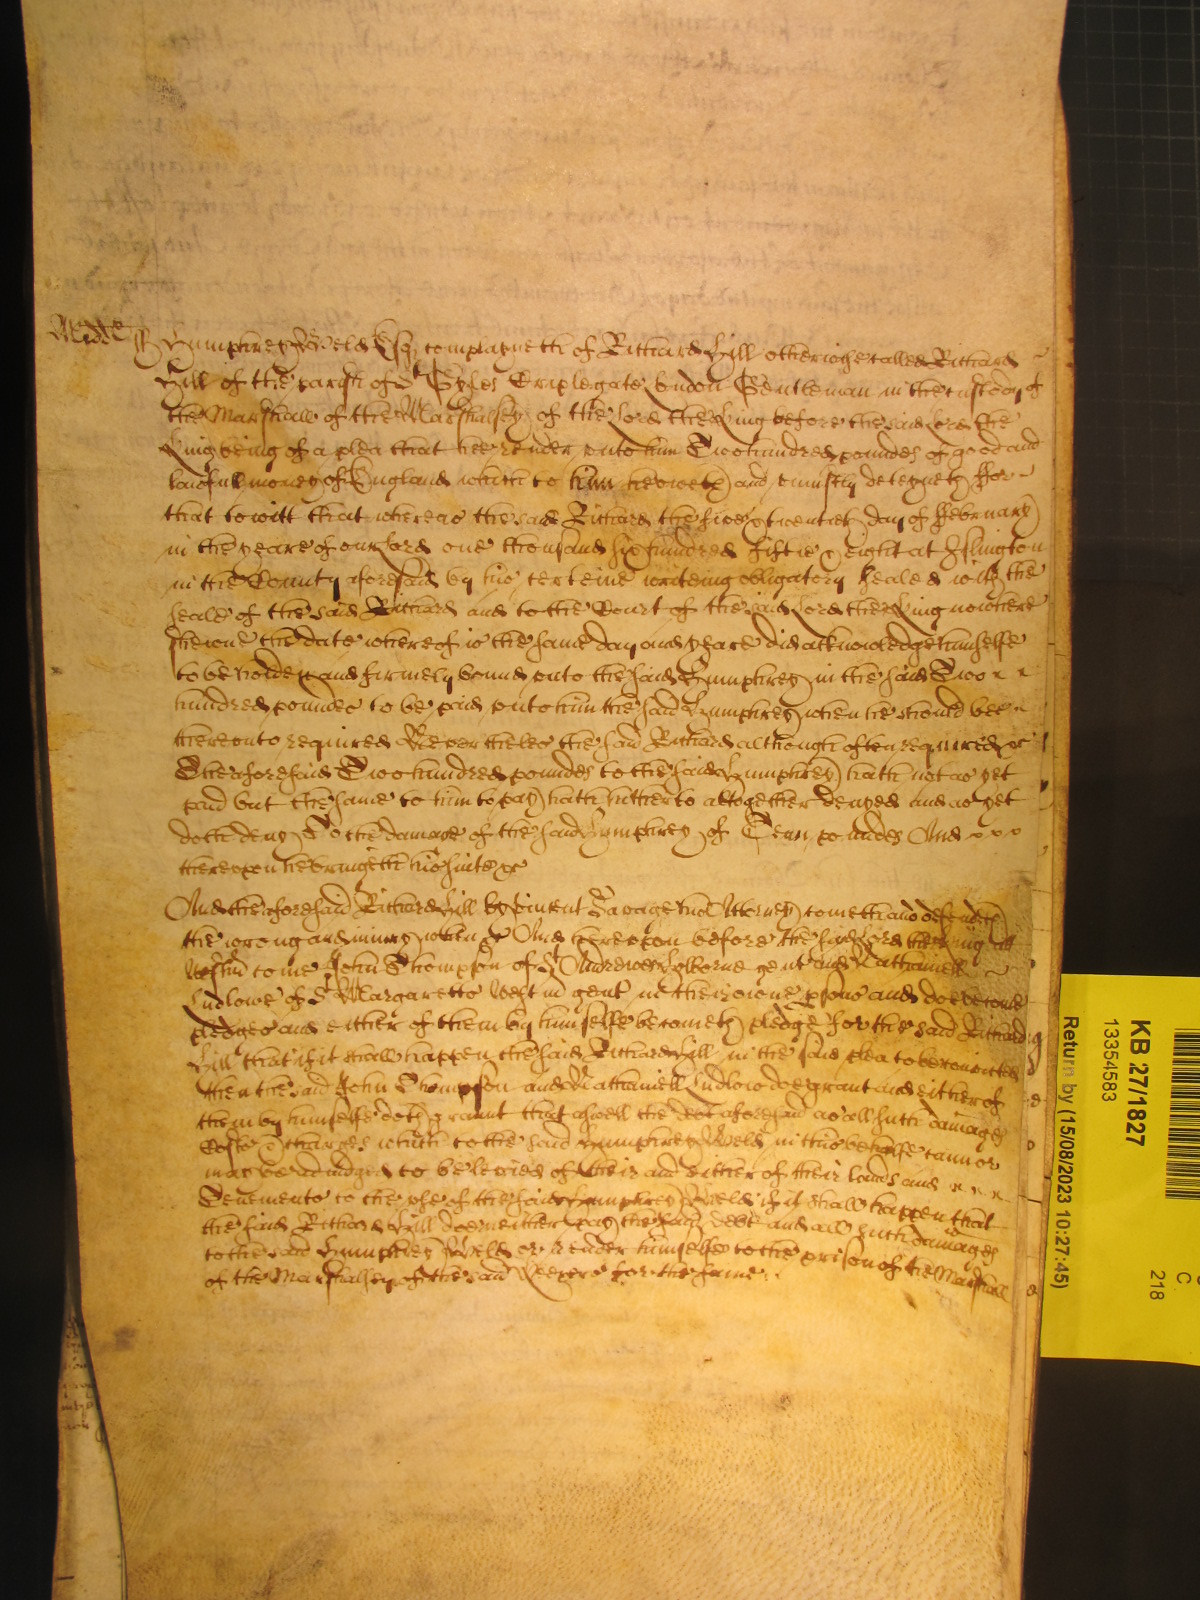 Midd ss Humphrey Weld Esqr complayneth of Richard Hill otherwise called Richard
Hill of the parish of St Gyles Criplegate london Gentleman in the custody of
the Marshall of the Marshalsey of the Lord the King before the said Lord the
King being of a plea that hee render vnto him Two hundred pounds of good and
lawfull money of England which to him he oweth and vniustly deteyneth ffor
that towitt that whereas the said Richard the five & twentieth day of ffebruary
in the yeare of our Lord one thousand six hundred fiftie & eight at Islington
in the County aforesaid by his certeine writeing obligatory sealed with the
seale of the said Richard and to the Court of the said Lord the King now here
shewne the date whereof is the same day and yeare did acknowledge himselfe
to be holden and firmely bound vnto the said Humphrey in the said Two
hundred pounds to be paid vnto him the said Humphrey when he should bee
therevnto required Neverthelesse the said Richard although often required &c
The aforesaid Two hundred pounds to the said Humphrey hath not as yet
paid but the same to him to pay hath hitherto altogether denyed and as yet
doth deny To the damage of the said Humphrey of Tenn pounds And
therevpon he bringeth his suite &c
And the aforesaid Richard Hill by Vincent Savage his Attorney cometh and defendeth
the wrong and iniury when &c And herevpon before the said Lord the King att
Westm come John Thompson of St Andrewes Holborne gent and Nathaniell
Ludlowe of St Margaretts Westm gent in their owne psons and doe become
pledges and either of them by himselfe becometh pledge for the said Richard
Hill that if it shall happen the said Richard Hill in the said plea to be convicted
then the said John Thompson and Nathaniell Ludlow doe grant and either of
them by himselfe doth graunt that aswell the debt aforesaid as all such damages
Costs & charges which to the said Humphrey Weld in this behalfe
may be adiudged to be levied of their and either of their lands and
Tenements to the vse of the said Humphrey Weld if it shall happen that
the said Richard Hill doe neither pay the said debt and all such damages
to the said Humphrey Weld or render himselfe to the prison of the Marshall
of the Marshalsey of the said for the same
KB 27/1827
13354583
Return by (15/08/2023 10:27:45)
C
218